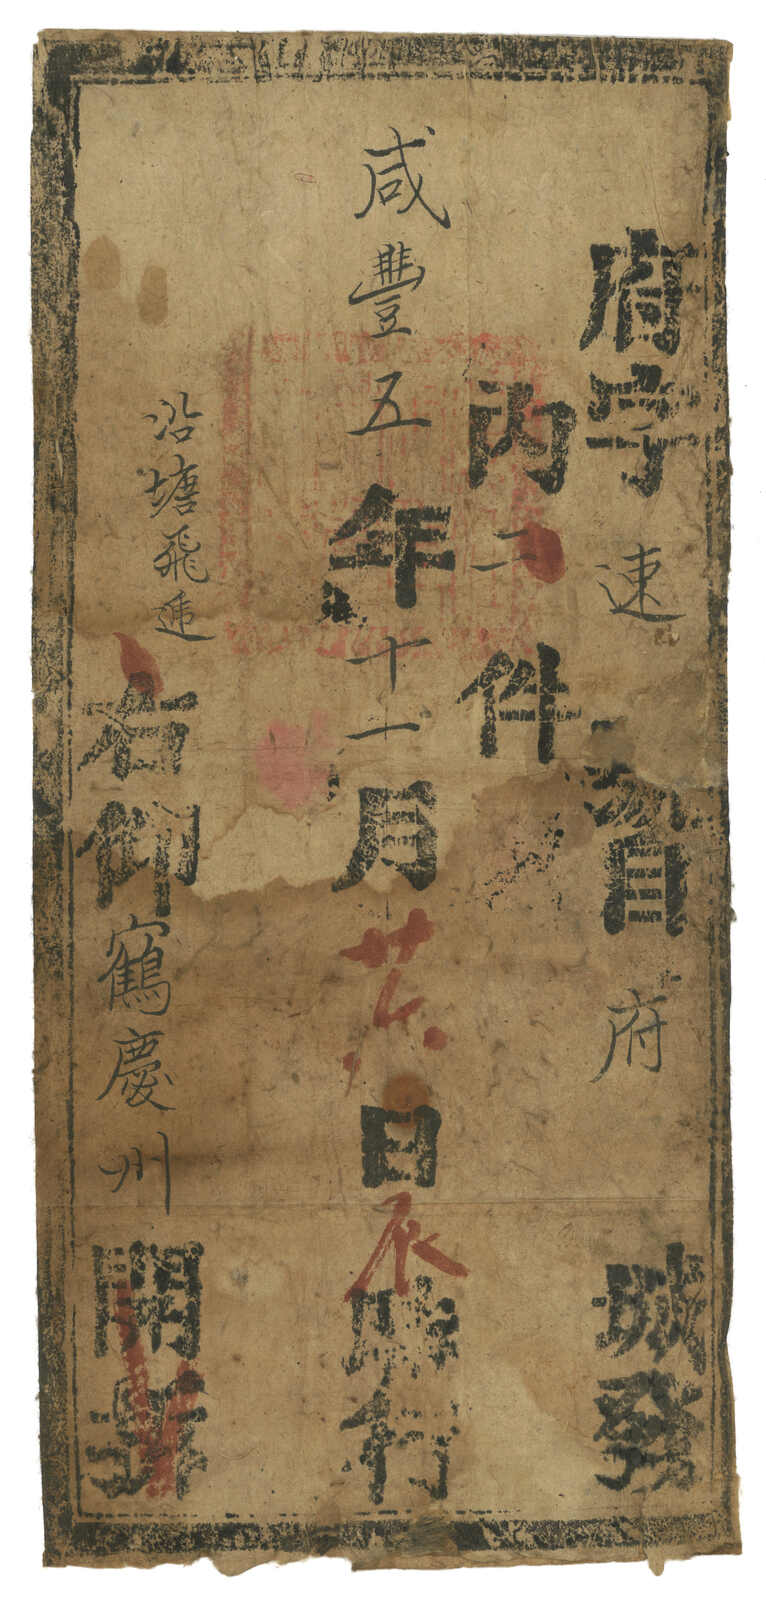 府字速號自府城發
內二件
咸豐五年十一月廿六日辰時行
沿塘飛遞
右仰鶴慶州開拆